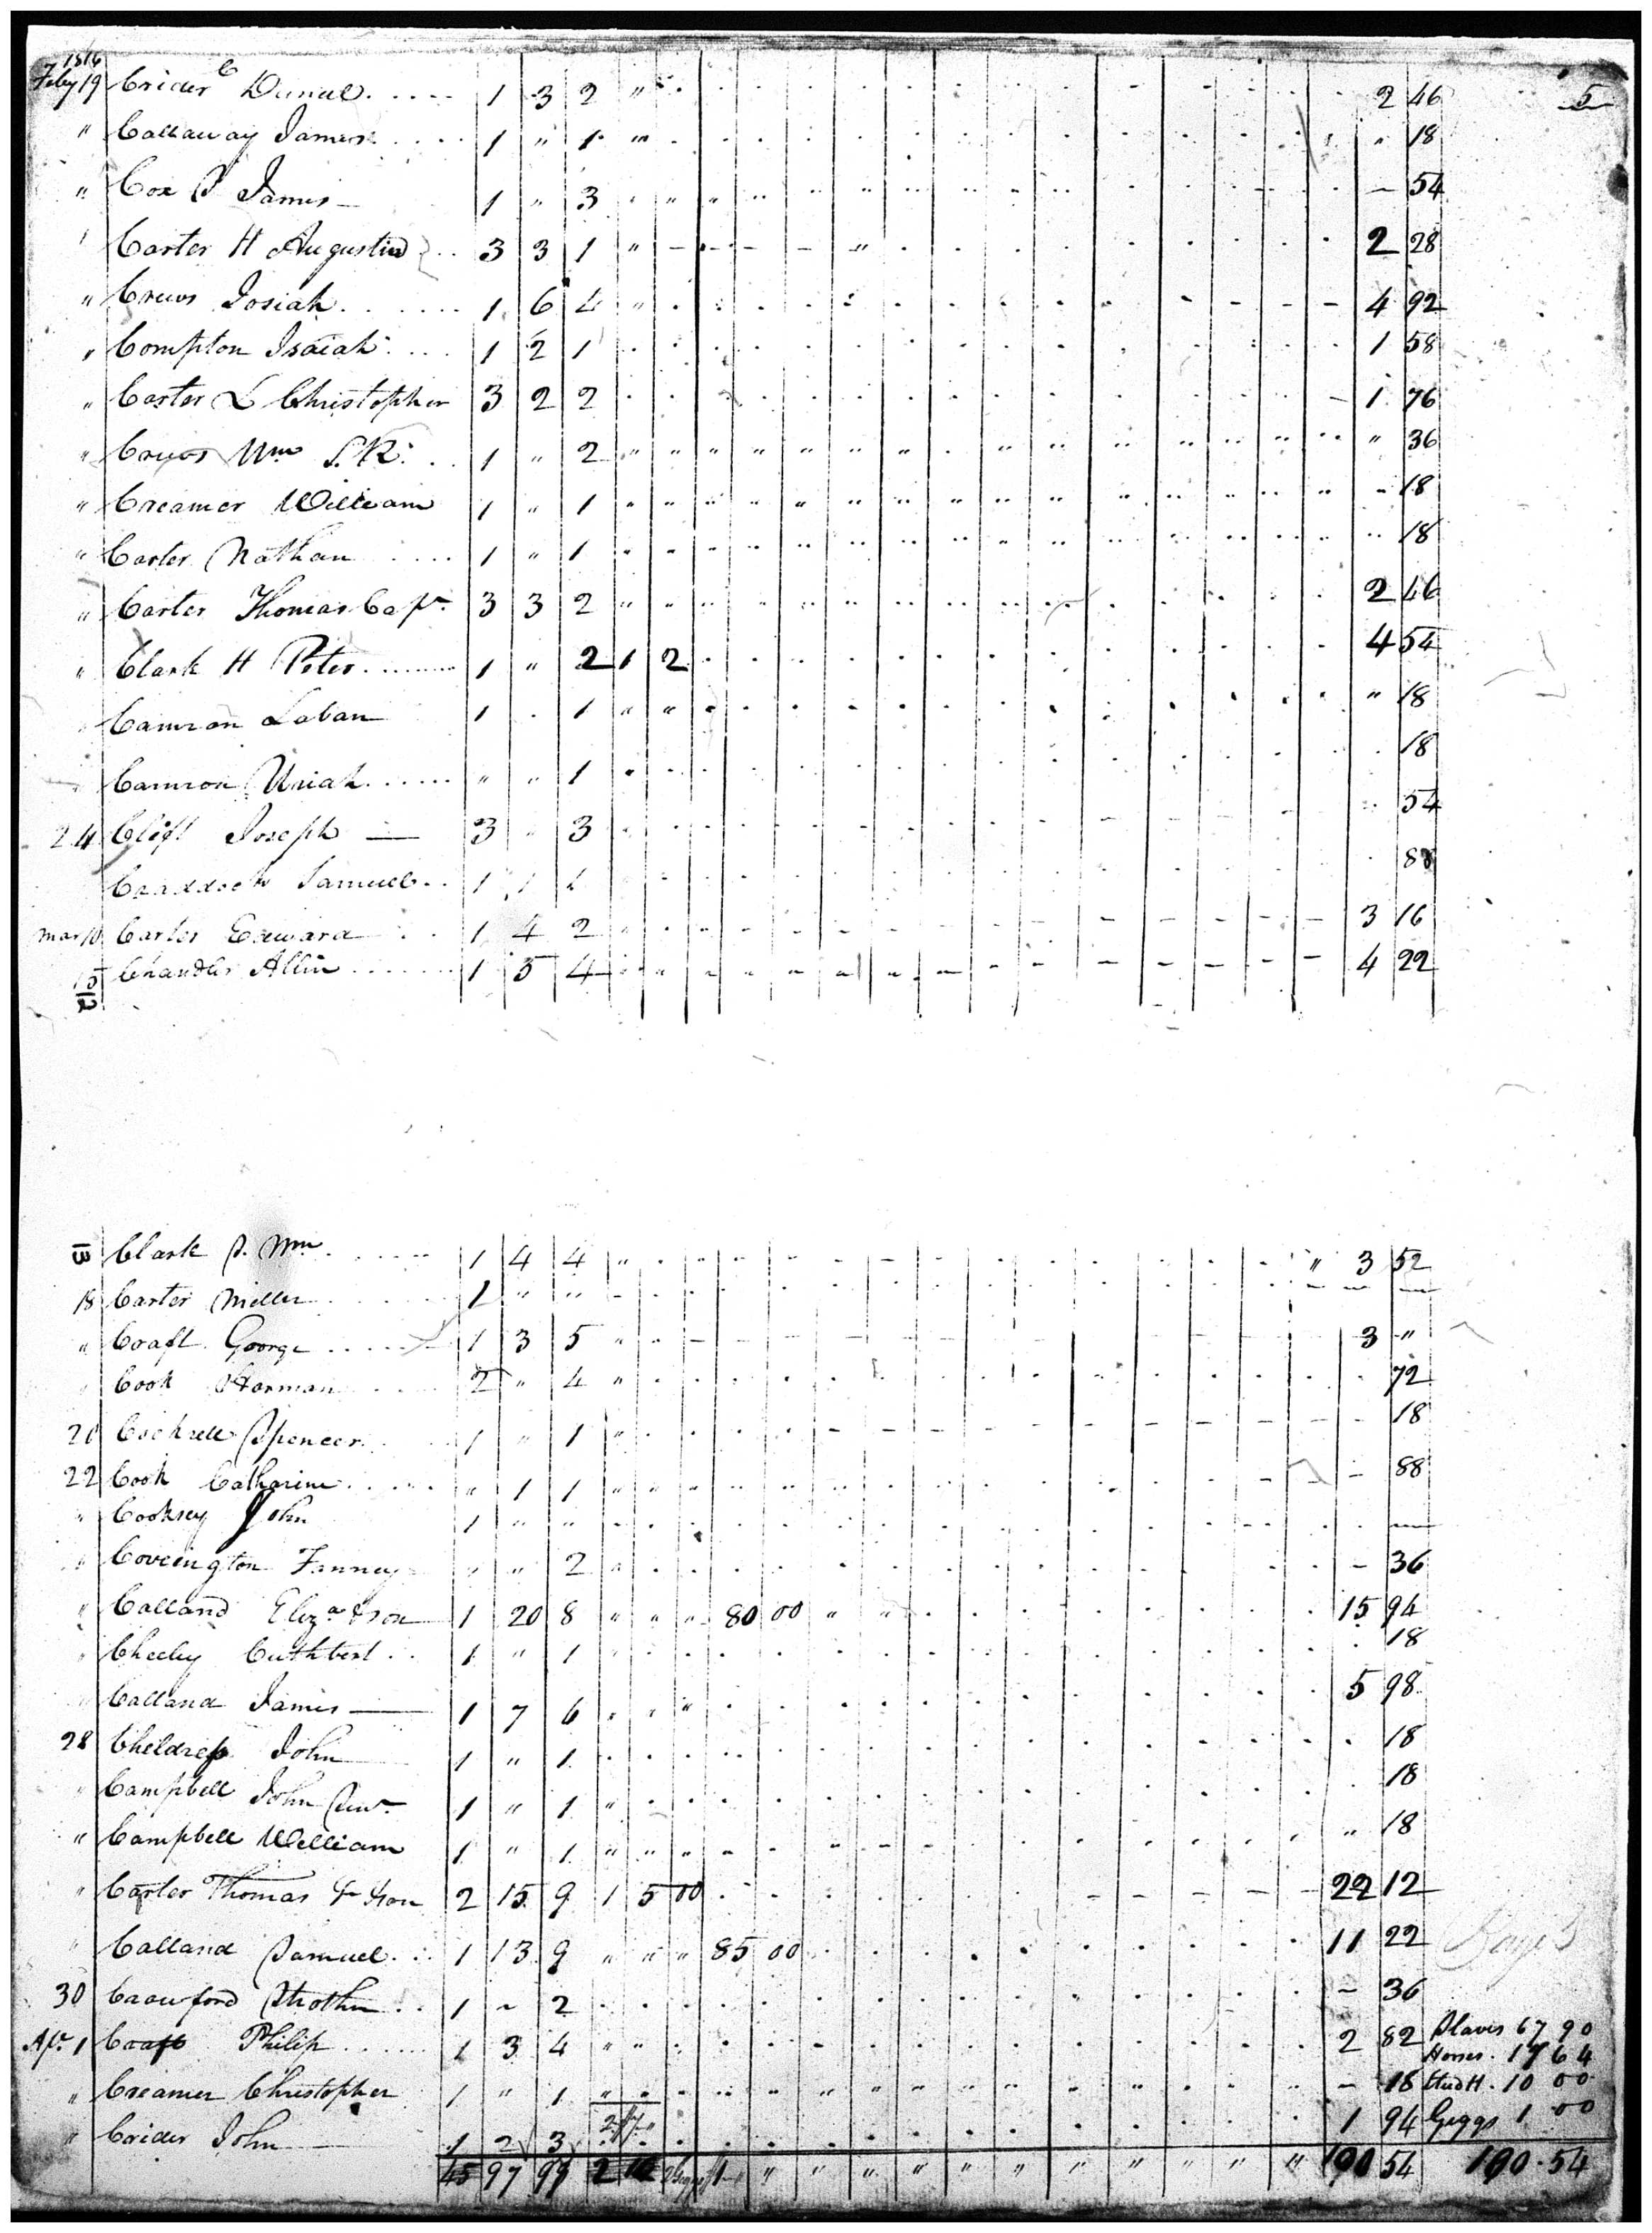 1816 C 5
Feby 19 Crider Daniel 1 3 2 " 2 46
" Callaway James 1 " 1 " " 18
" Cox P James 1 " 3 " " " — 54
Carter H Augustin 3 3 1 " 2 28
" Crews Josiah 1 6 4 " 4 92
" Compton Isaiah 1 2 1 1 58
" Carter L Christopher 3 2 2 1 76
" Crews Wm S.R. 1 " 2 " " 36
" Creamer William 1 " 1 " 18
" Carter Nathan 1 " 1 " 18
" Carter Thomas Capt. 3 3 2 " 2 46
" Clark H Peter 1 " 2 1 2 4 54
Camron Laban 1 . 1 " " " 18
Camron Uriah " " 1 18
24 Clift Joseph — 3 " 3 54
Craddock Samuel 1 1 1 88
Mar 10 Carter Edward 1 4 2 3 16
15 Chandler Allin 1 5 4 4 22
12
13 Clark P. Wm 1 4 4 " " 3 52
18 Carter Miller 1 " " — —
" Craft George 1 3 5 " 3 "
Cook Harman 2 " 4 " 72
20 Cockrell Spencer 1 " 1 " 18
22 Cook Catharine " 1 1 " — 88
" Cooksey John 1 " " —
" Covington Fanney " " 2 " — 36
" Calland Eliza & son 1 20 8 " " " 80 00 " " 15 94
" Cheeley Cuthbert 1 " 1 18
Calland James — 1 7 6 " " " 5 98
28 Cheldress John 1 " 1 18
" Campbell John Junr. 1 " 1 " 18
" Campbell William 1 " 1 " " " " 18
" Carter Thomas & son 2 15 9 1 5 00 22 12
" Calland Samuel 1 13 9 " " " 85 00 11 22
30 Crawford Strother 1 ~ 2 — 36
Ap. 1 Craft Philip 1 3 4 " " 2 82 Slaves 67 90
Horses. 17 64
" Creamer Christopher 1 " 1 " — 18 Stud H. 10 00
" Crider John 1 2 3 1 94 Giggs 1 00
45 97 99 2 10 190 54 190.54